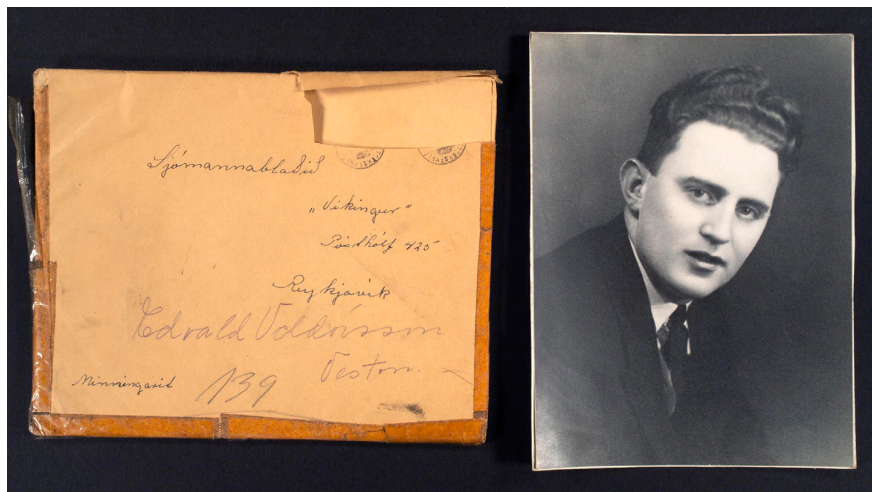 Sjómannablaðið
"Víkingur"
Pósthólf 425
Reykjavík
Edvald Valdórsson
Vestm.
Minningarit 139